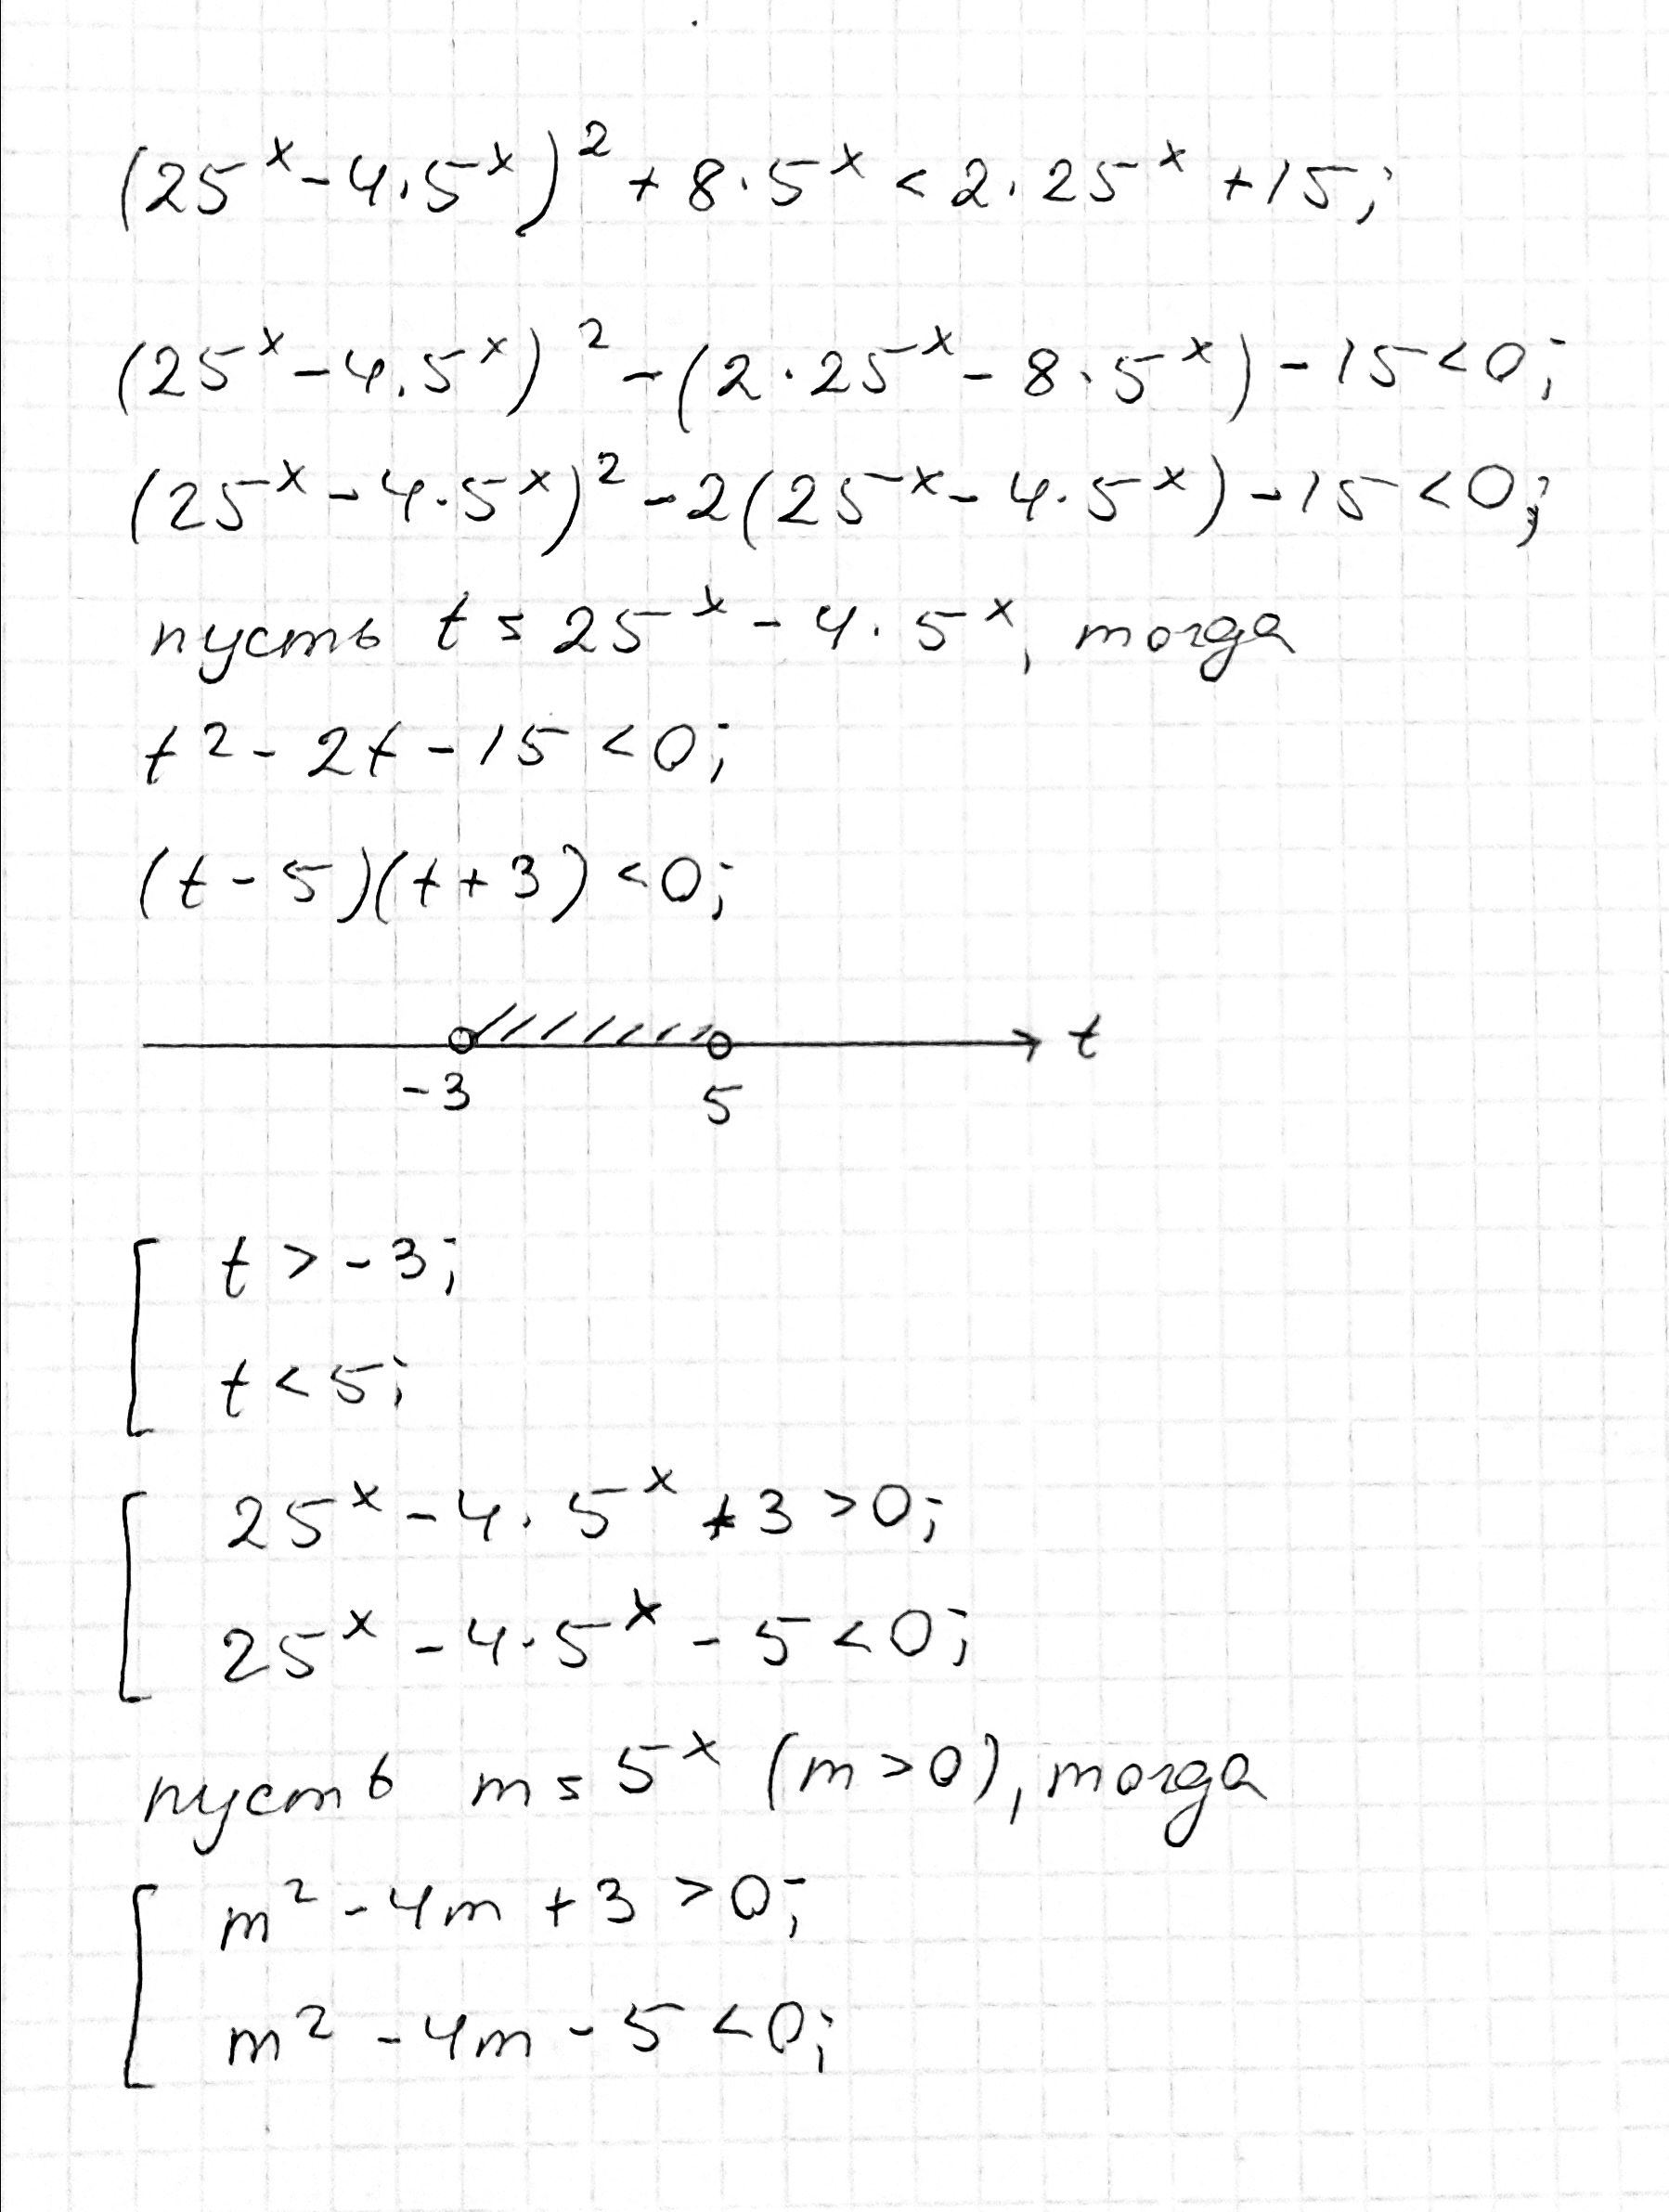 (25^x - 4·5^x)^2 + 8·5^x < 2·25^x + 15;
(25^x - 4·5^x)^2 - (2·25^x - 8·5^x) - 15 < 0;
(25^x - 4·5^x)^2 - 2(25^x - 4·5^x) - 15 < 0;
пусть t = 25^x - 4·5^x, тогда
t^2 - 2t - 15 < 0;
(t - 5)(t + 3) < 0;
t
-3 5
[ t > -3;
t < 5;
[ 25^x - 4·5^x + 3 > 0;
25^x - 4·5^x - 5 < 0;
пусть m = 5^x (m > 0), тогда
[ m^2 - 4m + 3 > 0;
m^2 - 4m - 5 < 0;